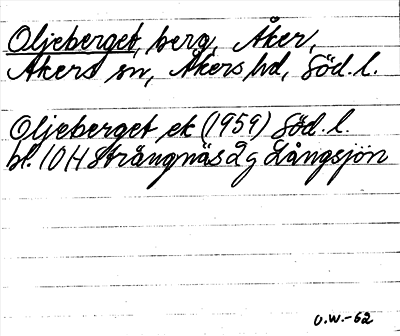 Oljeberget, berg, Åker,
Åkers sn, Åkers hd, Söd. l.
Oljeberget ek (1959) Söd. l.
bl. 10 H Strängnäs 2 g Långsjön
O.W.-62